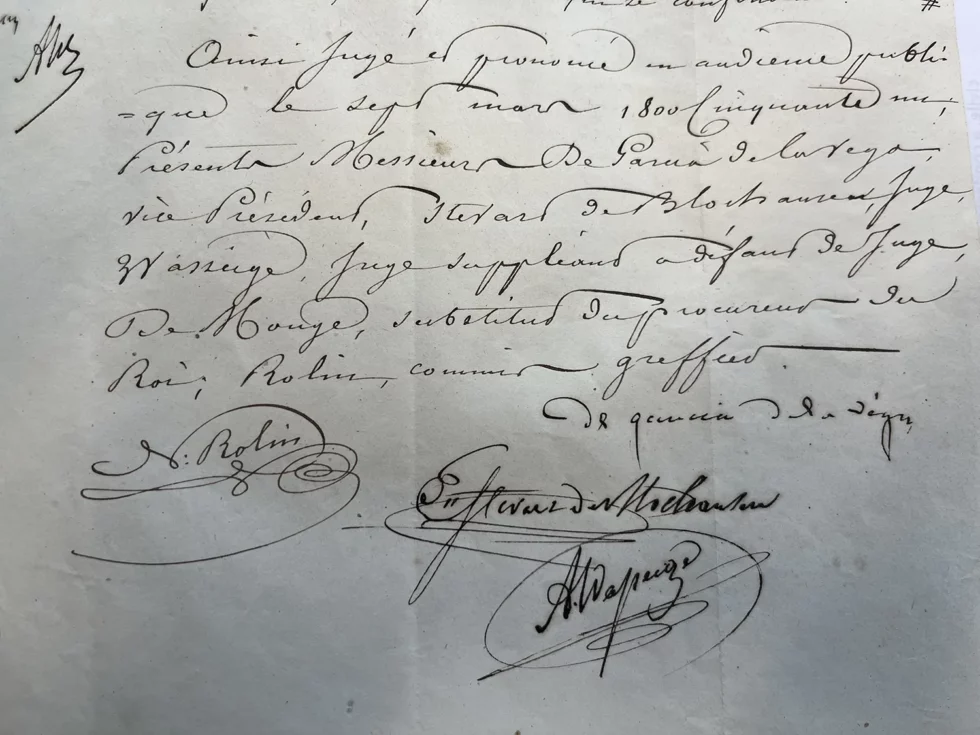 #
Ainsi Jugé et prononcé en audience publi-
=que le sept mars 1800 Cinquante un,
Présents Messieurs De Garcia de la Vega,
vice Président, Stevart de Blochausen, Juge,
Wasseige, Juge suppléant a défaut de Juge,
De Monge, substitut du procureur du
Roi, Rolin, commis greffier
de garcia de la véga
N. Rolin
Stevart de Blochausen
A. Wasseige